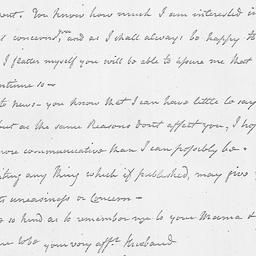 ont. You know how much I am interested in
concerns you and as I shall always be happy to
I flatter myself you will be able to assure me that
ontinue so—
to news—you know that I can have little to say
but as the same Reasons dont affect you, I hop
more communicative than I can possibly be.
iting any Thing which if published, may give y
ts uneasiness or Concern—
so kind as to remember me to your Mama &
your very affte. Husband